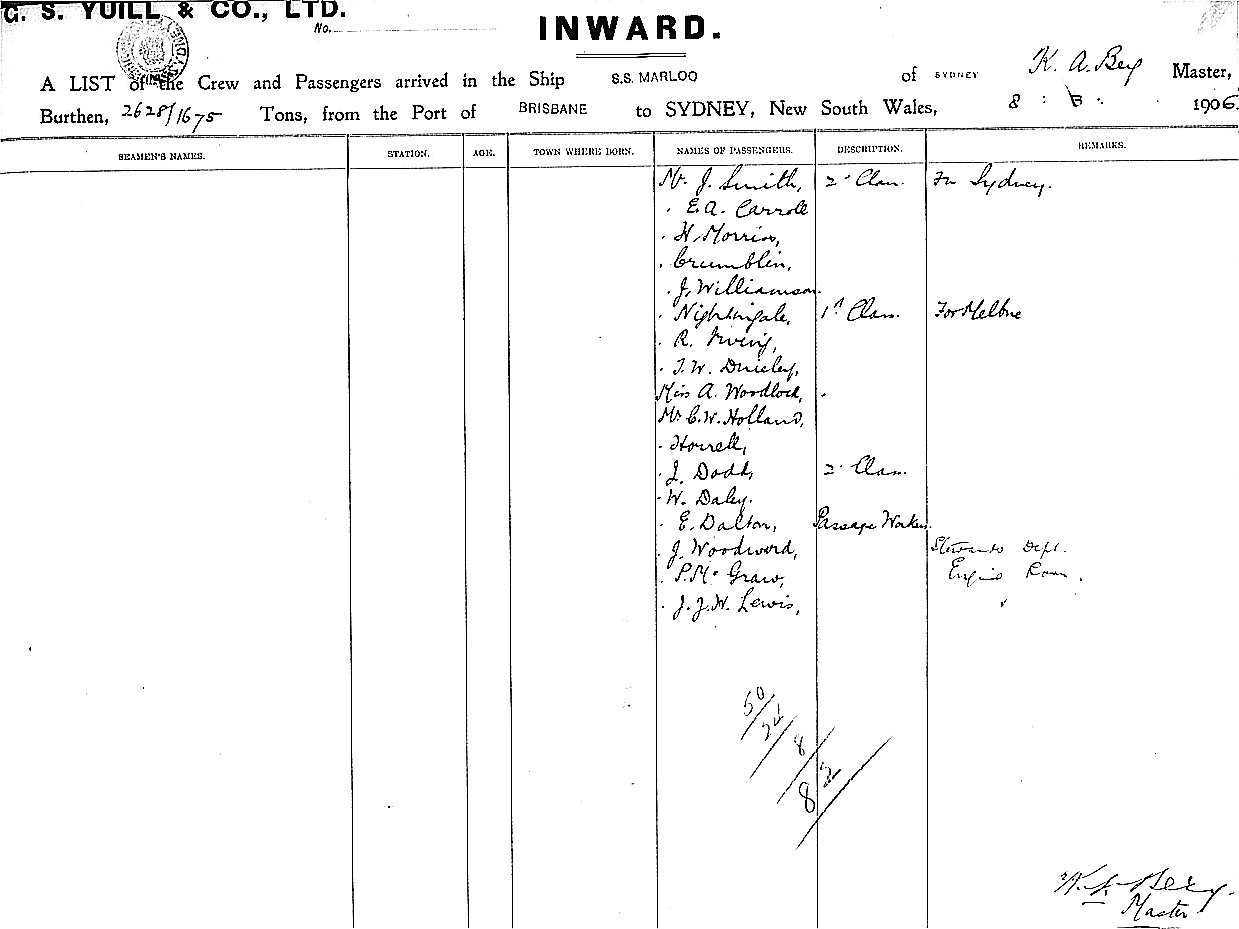 G. S. YUILL & CO., LTD.
No.
INWARD.
A LIST of the Crew and Passengers arrived in the Ship S.S. MARLOO of SYDNEY K. A. Berg Master,
Burthen, 2628/1675 Tons, from the Port of BRISBANE to SYDNEY, New South Wales, 8 : : 1906.
SEAMEN'S NAMES. STATION. AGE. TOWN WHERE BORN. NAMES OF PASSENGERS. DESCRIPTION. REMARKS.
Mr. J. Smith, 2d Class. For Sydney.
. E.A. Carroll
. H. Morriss,
. Crumblin,
. J. Williamson.
. Nightingale, 1st Class. For Melbne
. R. Irving,
. T. W.
Miss A. Woodlock, .
Mr C. W. Holland,
. Horrell,
. J. Dodd, 2d Class.
. W. Daley.
. E. Dalton, Passage Workers.
. J. Woodward, Stewards Dept.
. P. Mc Graw, Engine Room.
. J. J. W. Lewis, "
50/
24/
8/
82/
K. A. Berg.
Master